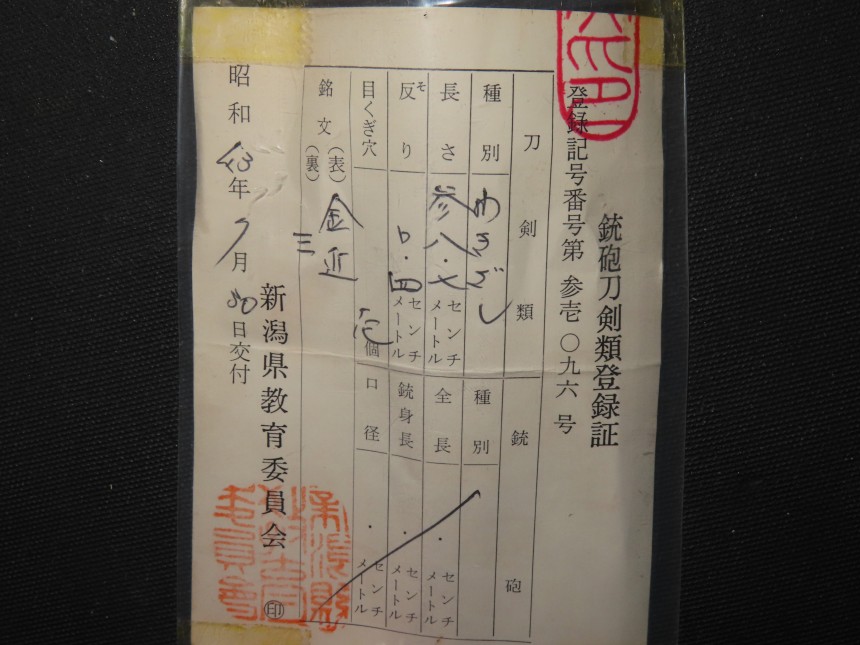 銃砲刀剣類登録証
登録記号番号第 参壱〇九六 号
刀剣類
銃砲
種別 わきざし
種別
長さ 参八・七 センチメートル
全長 ・ センチメートル
反り そ 〇・四 センチメートル
銃身長 ・ センチメートル
目くぎ穴 壱個
口径 ・ センチメートル
銘文 (表) 金近
(裏) 三
昭和 43年 7月 30日交付
新潟県教育委員会 ㊞